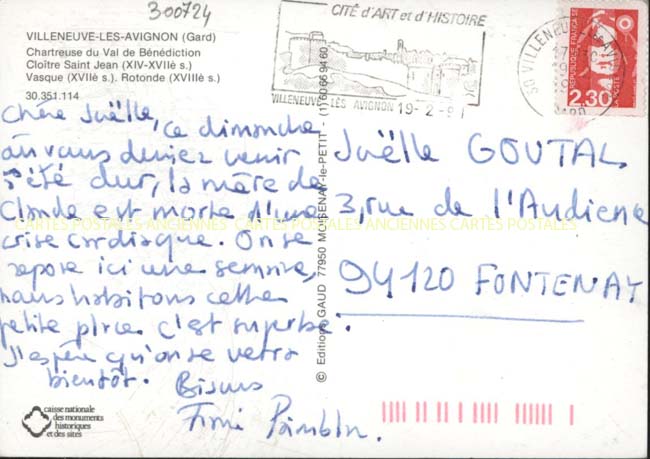 300724
VILLENEUVE-LES-AVIGNON (Gard)
Chartreuse du Val de Bénédiction
Cloître Saint Jean (XIV-XVIIè s.)
Vasque (XVIIè s.). Rotonde (XVIIIè s.)
30.351.114
CITÉ d'ART et d'HISTOIRE
VILLENEUVE LÈS AVIGNON 19-2-91
30 VILLENEUVE
RÉPUBLIQUE FRANÇAISE
2,30
Chère Joëlle,
ce dimanche
où vous deviez venir
a été dur, la mère de
Claude est morte d'une
crise cardiaque. On se
repose ici une semaine,
nous habitons cette
petite place c'est superbe.
J'espère qu'on se verra
bientôt. Bisous
© Editions GAUD 77950 MOISENAY-le-PETIT - (1) 60 66 94 60
Joëlle GOUTAL
3, rue de l'Audience
94120 FONTENAY
CARTES POSTALES ANCIENNES CARTES POSTALES ANCIENNES CARTES POSTALES
caisse nationale
des monuments
historiques
et des sites